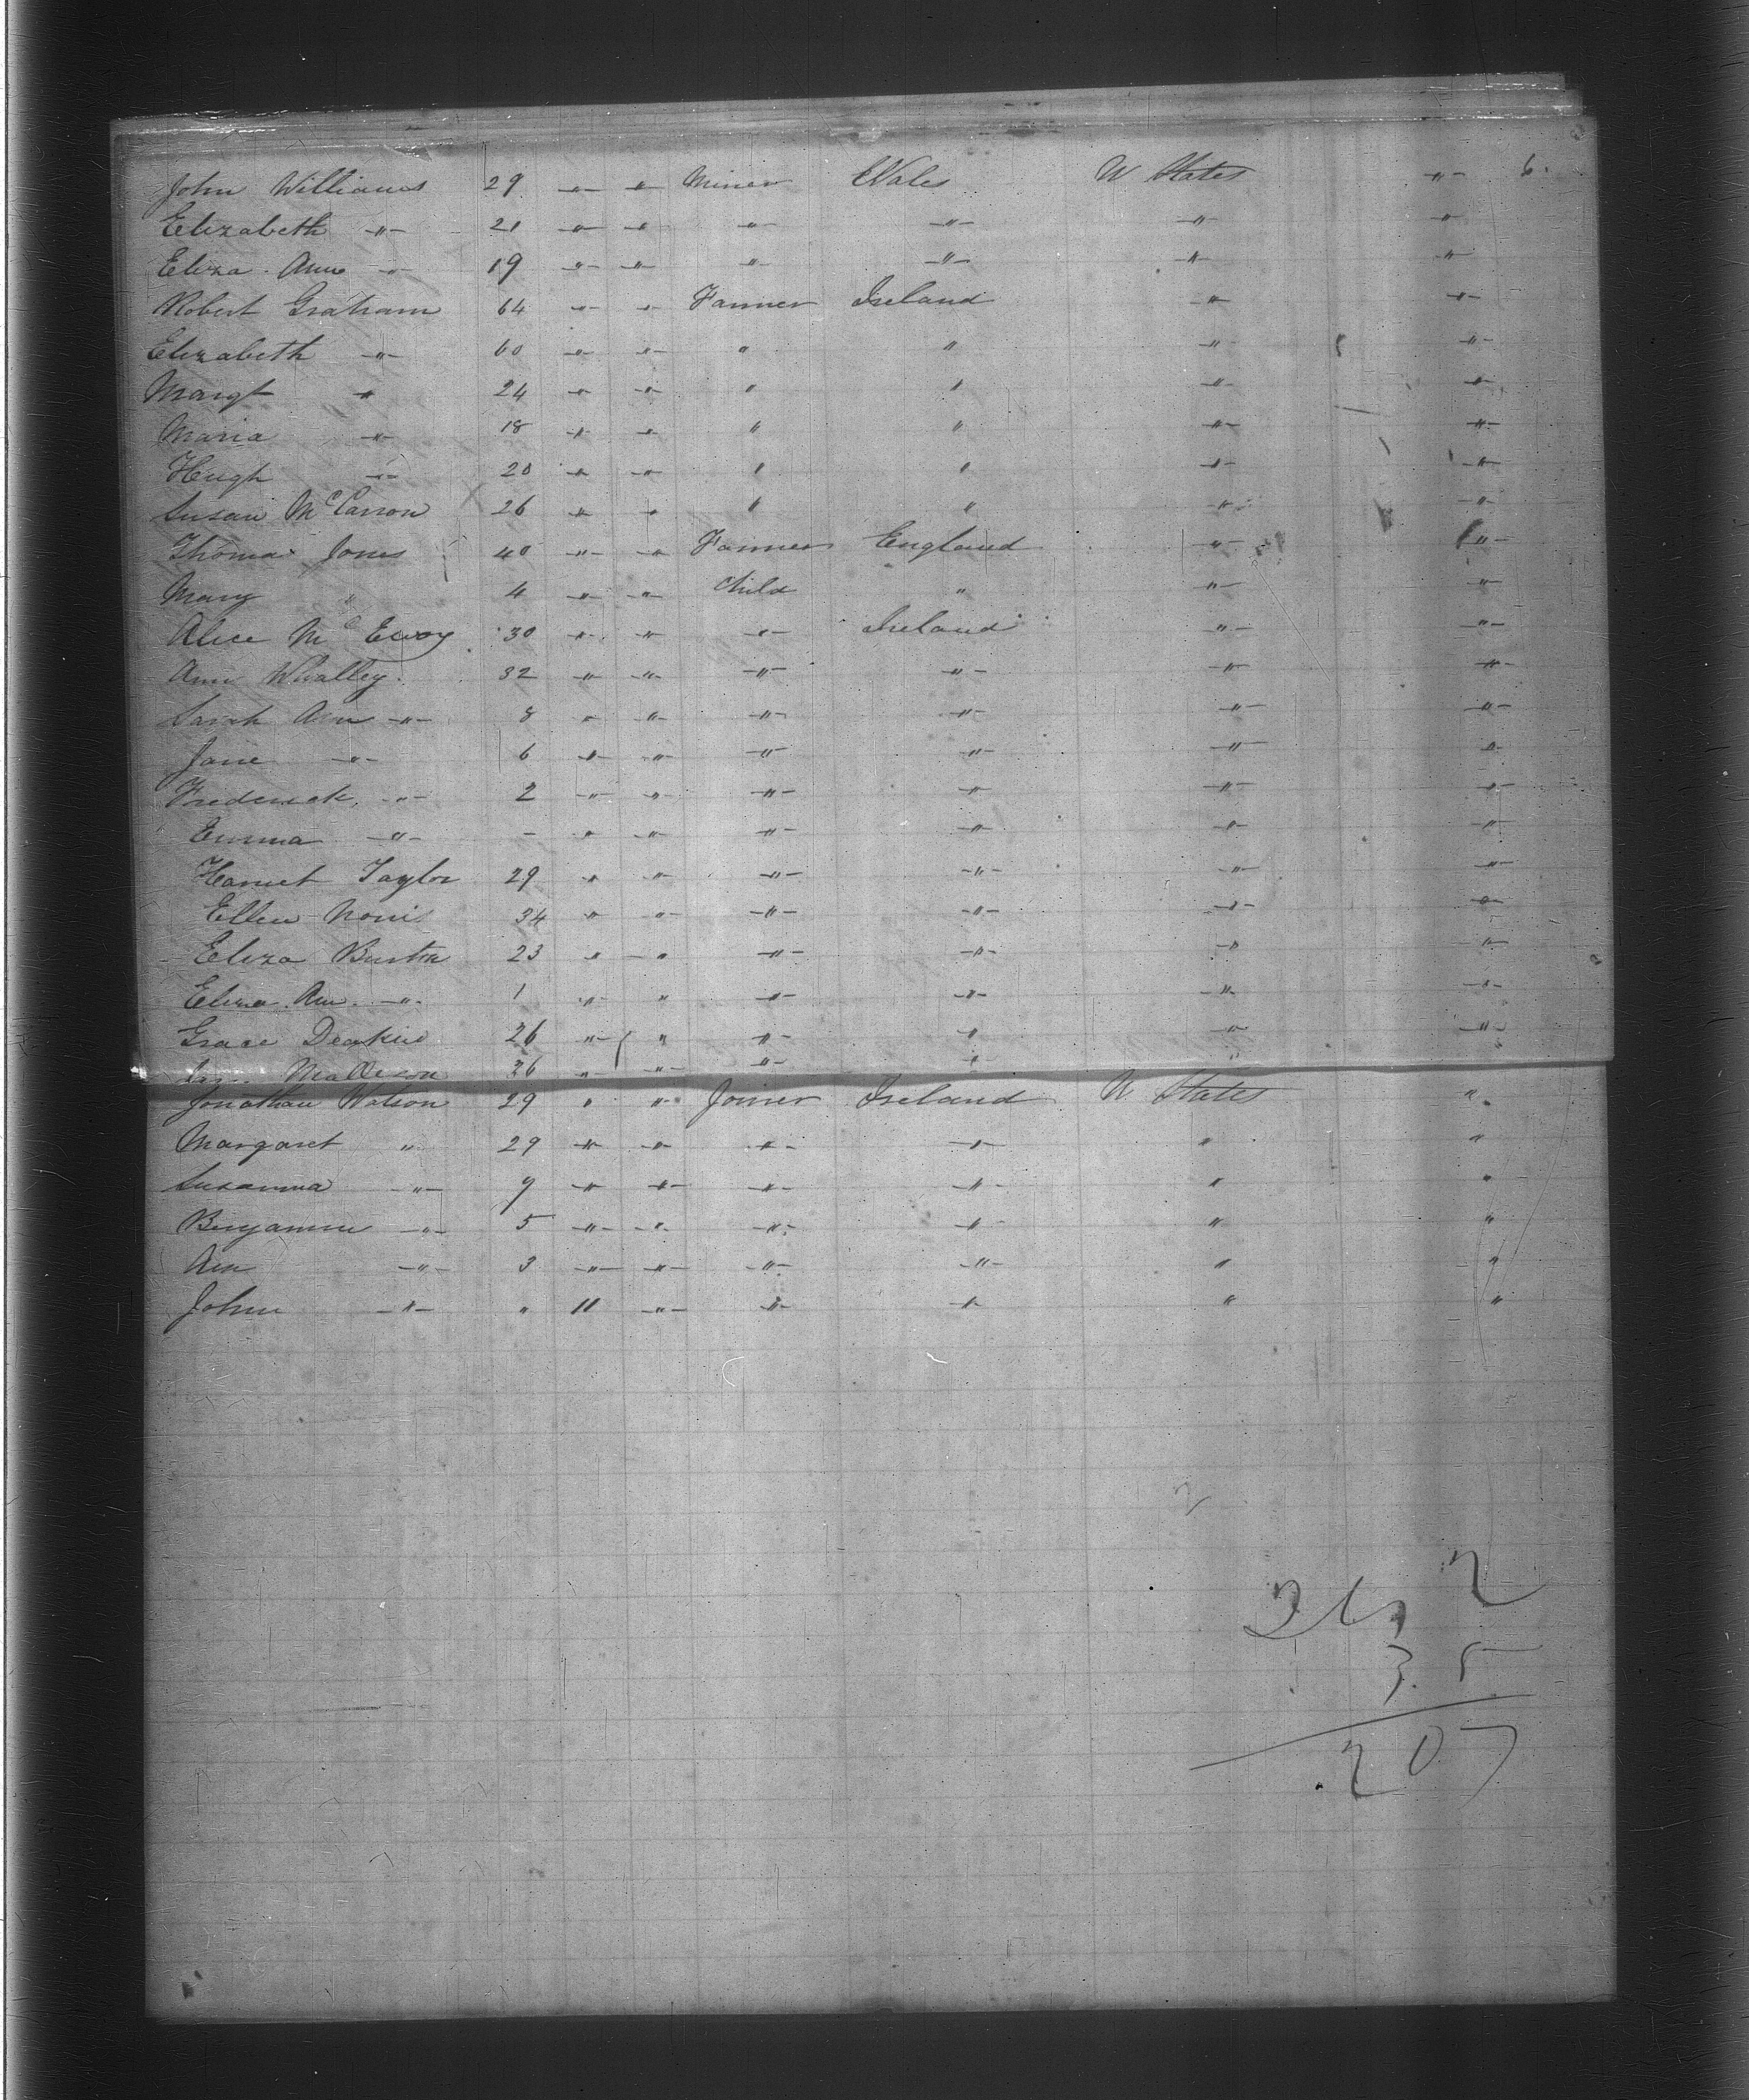 John Williams 29 -"- -"- Miner Wales U States -"- 6.
Elizabeth -"- 21 -"- -"- -"- -"- -"- -"-
Eliza Ann -"- 19 -"- -"- " -"- -"- -"-
Robert Graham 64 -"- -"- Farmer Ireland -"- -"-
Elizabeth -"- 60 -"- -"- " " -"- -"-
Margt " 24 -"- -"- " " -"- -"-
Maria -"- 18 -"- -"- " " -"- -"-
Hugh -"- 20 -"- -"- " " -"- -"-
Susan McCarron 26 -"- " " " -"- -"-
Thomas Jones 40 -"- -"- Farmer England -"- -"-
Mary " 4 -"- -"- Child " -"- -"-
Alice McEvoy 30 -"- -"- -"- Ireland -"- -"-
Ann Whalley 32 -"- -"- -"- -"- -"- -"-
Sarah Ann -"- 8 " -"- -"- -"- -"- -"-
Jane -"- 6 -"- -"- -"- -"- -"- -"-
Frederick -"- 2 -"- -"- -"- -"- -"- -"-
Emma -"- - " -"- -"- -"- -"- -"-
Harriet Taylor 29 " " -"- -"- -"- -"-
Ellen Norris 34 " " -"- -"- -"- -"-
Eliza 23 " -" -"- -"- -" -"-
Eliza Ann -"- 1 -"- " -"- -"- -"- -"-
Grace Deakin 26 -"- " -"- " -"- -"-
26 " -"- -"- -"- "
Jonathan Watson 29 " " Joiner Ireland U States "
Margaret " 29 -"- -"- -"- -"- " "
Susanna -"- 9 -"- -"- -"- -"- " "
Benjamin -"- 5 -"- -"- -"- -"- " "
Ann -"- 3 -"- -"- -"- -"- " "
John -"- " 11 -"- -"- -"- " "
2
3 5
207